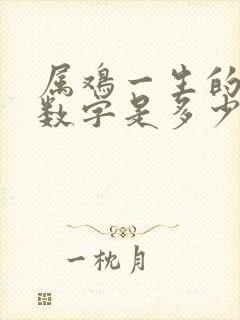 属鸡一生的
数字是多少
一枕月